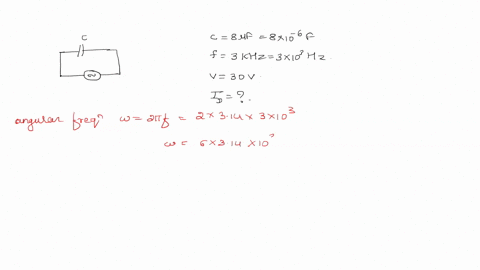 C
C = 8 μf = 8×10⁻⁶ F
f = 3 KHz = 3×10³ Hz.
V = 30V.
I_D = ?.
angular freqⁿ ω = 2πf = 2 × 3.14 × 3×10³
ω = 6 × 3.14 × 10³